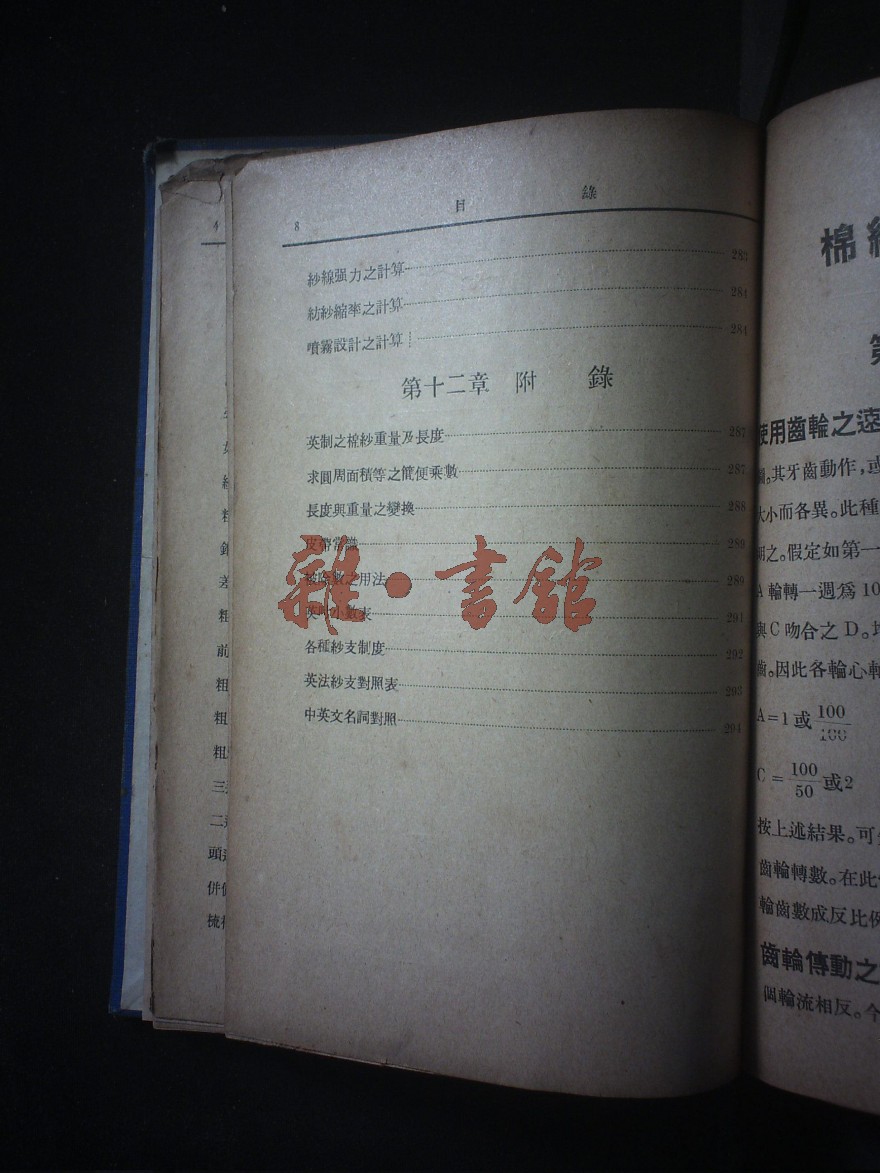 8 目 錄
紗線强力之計算 283
紡紗縮率之計算 284
噴霧設計之計算 284
第十二章 附 錄
英制之棉紗重量及長度 287
求圓周面積等之簡便乘數 287
長度與重量之變換 288
皮帶常識 289
被除數之用法 289
英吋小數表 291
各種紗支制度 292
英法紗支對照表 293
中英文名詞對照 294
雜·書館
4
粗
前
粗
粗
粗
三
二
頭
併
梳
棉
使用齒輪之速
其牙齒動作,或
大小而各異。此種
明之。假定如第一
A輪轉一週爲10
與C吻合之D。
齒。因此各輪心軸
A=1或100/100
C=100/50或2
按上述結果。可
齒輪轉數。在此
輪齒數成反比例
齒輪傳動之
個輪流相反。今